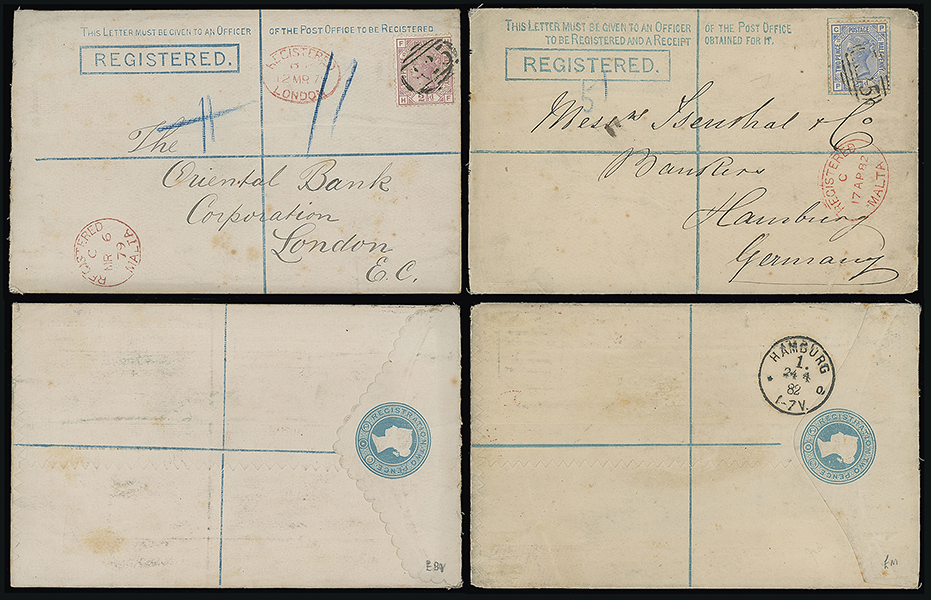 THIS LETTER MUST BE GIVEN TO AN OFFICER OF THE POST OFFICE TO BE REGISTERED
REGISTERED.
REGISTERED
12 MR 79
LONDON
The
Oriental Bank
Corporation
London
E.C.
REGISTERED
C
MR 6
79
MALTA
THIS LETTER MUST BE GIVEN TO AN OFFICER OF THE POST OFFICE
TO BE REGISTERED AND A RECEIPT OBTAINED FOR IT.
REGISTERED.
Messrs Isenthal & Co
Bankers
Hamburg
Germany
REGISTERED
C
17 AP 82
MALTA
REGISTRATION TWO PENCE
HAMBURG
1.
24 4
82
1-7V.
REGISTRATION TWO PENCE